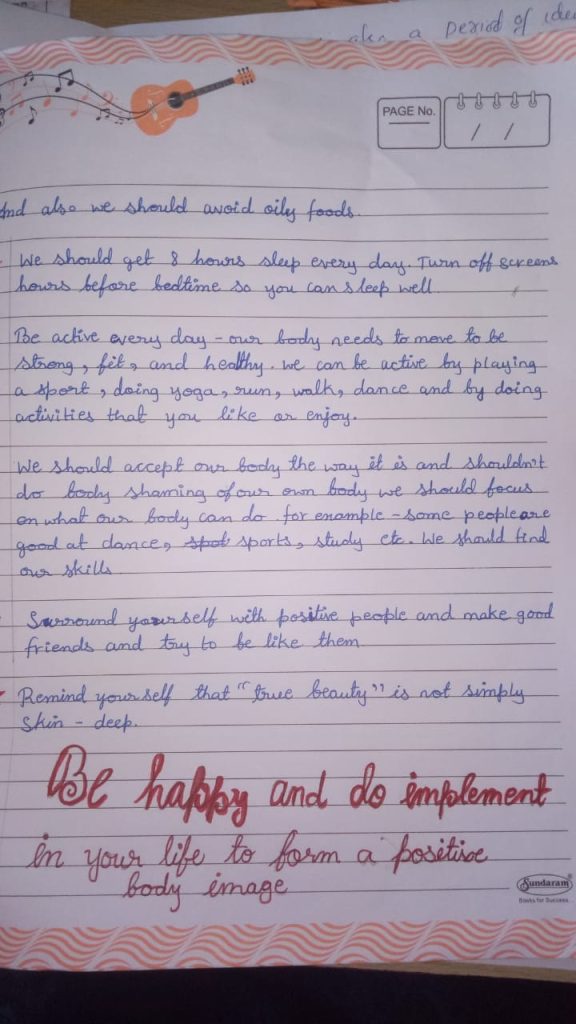 also a period of
PAGE No.
/ /
And also we should avoid oily foods.
We should get 8 hours sleep every day. Turn off screens
hours before bedtime so you can sleep well.
Be active every day - our body needs to move to be
strong, fit, and healthy. we can be active by playing
a sport, doing yoga, run, walk, dance and by doing
activities that you like or enjoy.
We should accept our body the way it is and shouldn't
do body shaming of our own body we should focus
on what our body can do. for example - some people are
good at dance, spot sports, study etc. We should find
our skills
Surround yourself with positive people and make good
friends and try to be like them
Remind yourself that "true beauty" is not simply
skin - deep.
Be happy and do implement
in your life to form a positive
body image
Sundaram
Books for Success...